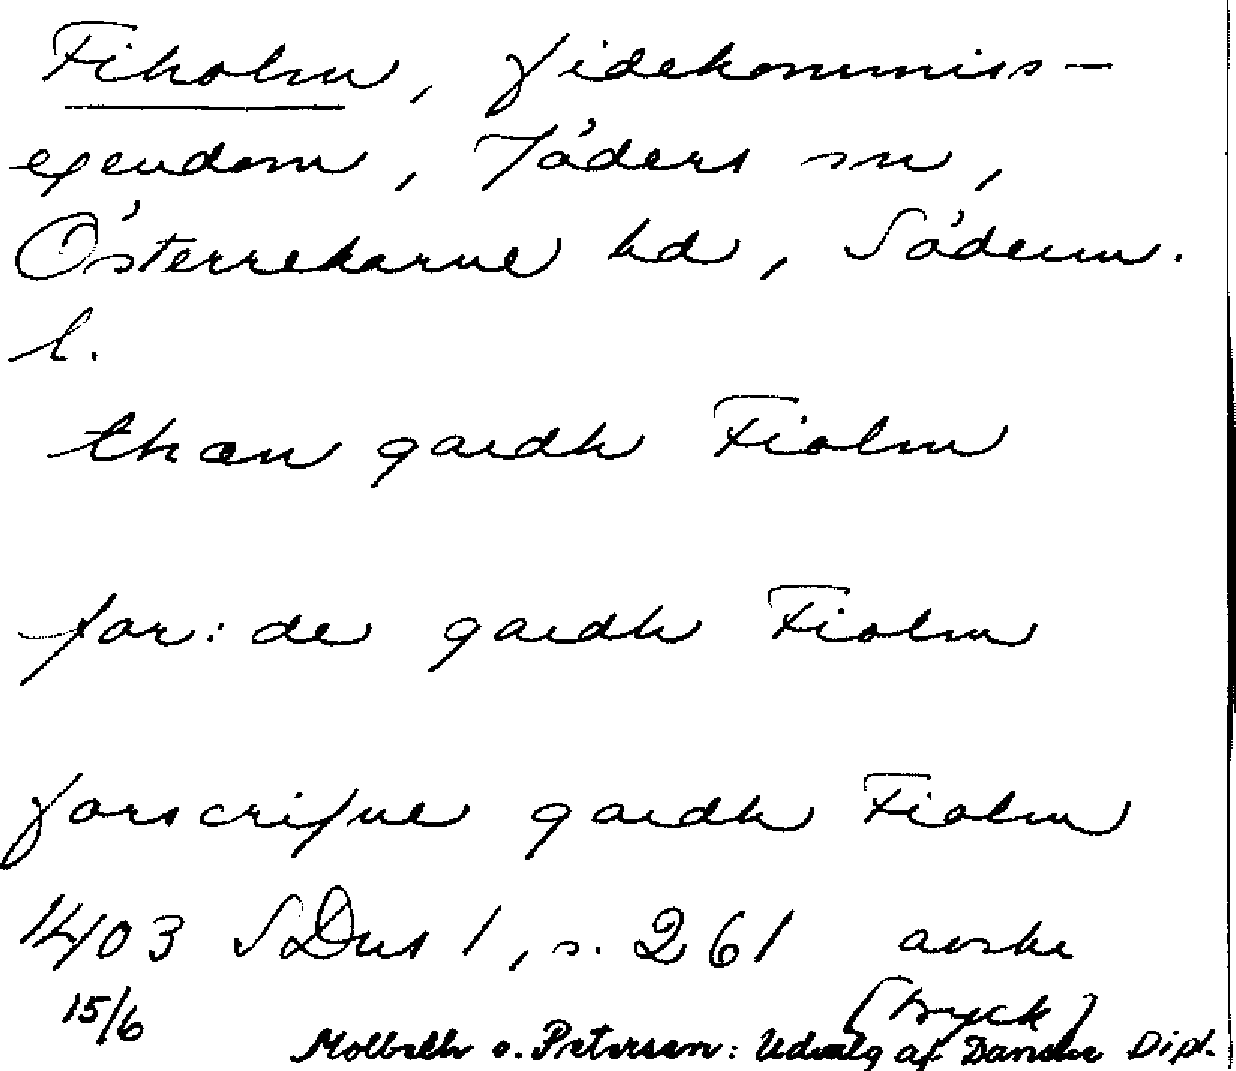 Fiholm, fidekommiss-
egendom, Jäders sn,
Österrekarne hd, Söderm.
l.
thæn gardh Fiolm
for: de gardh Fiolm
forscrifne gardh Fiolm
1403 SDns 1, s. 261 avskr
15/6 (tryck)
Molbech o. Petersen: Udvalg af Danske Dipl.